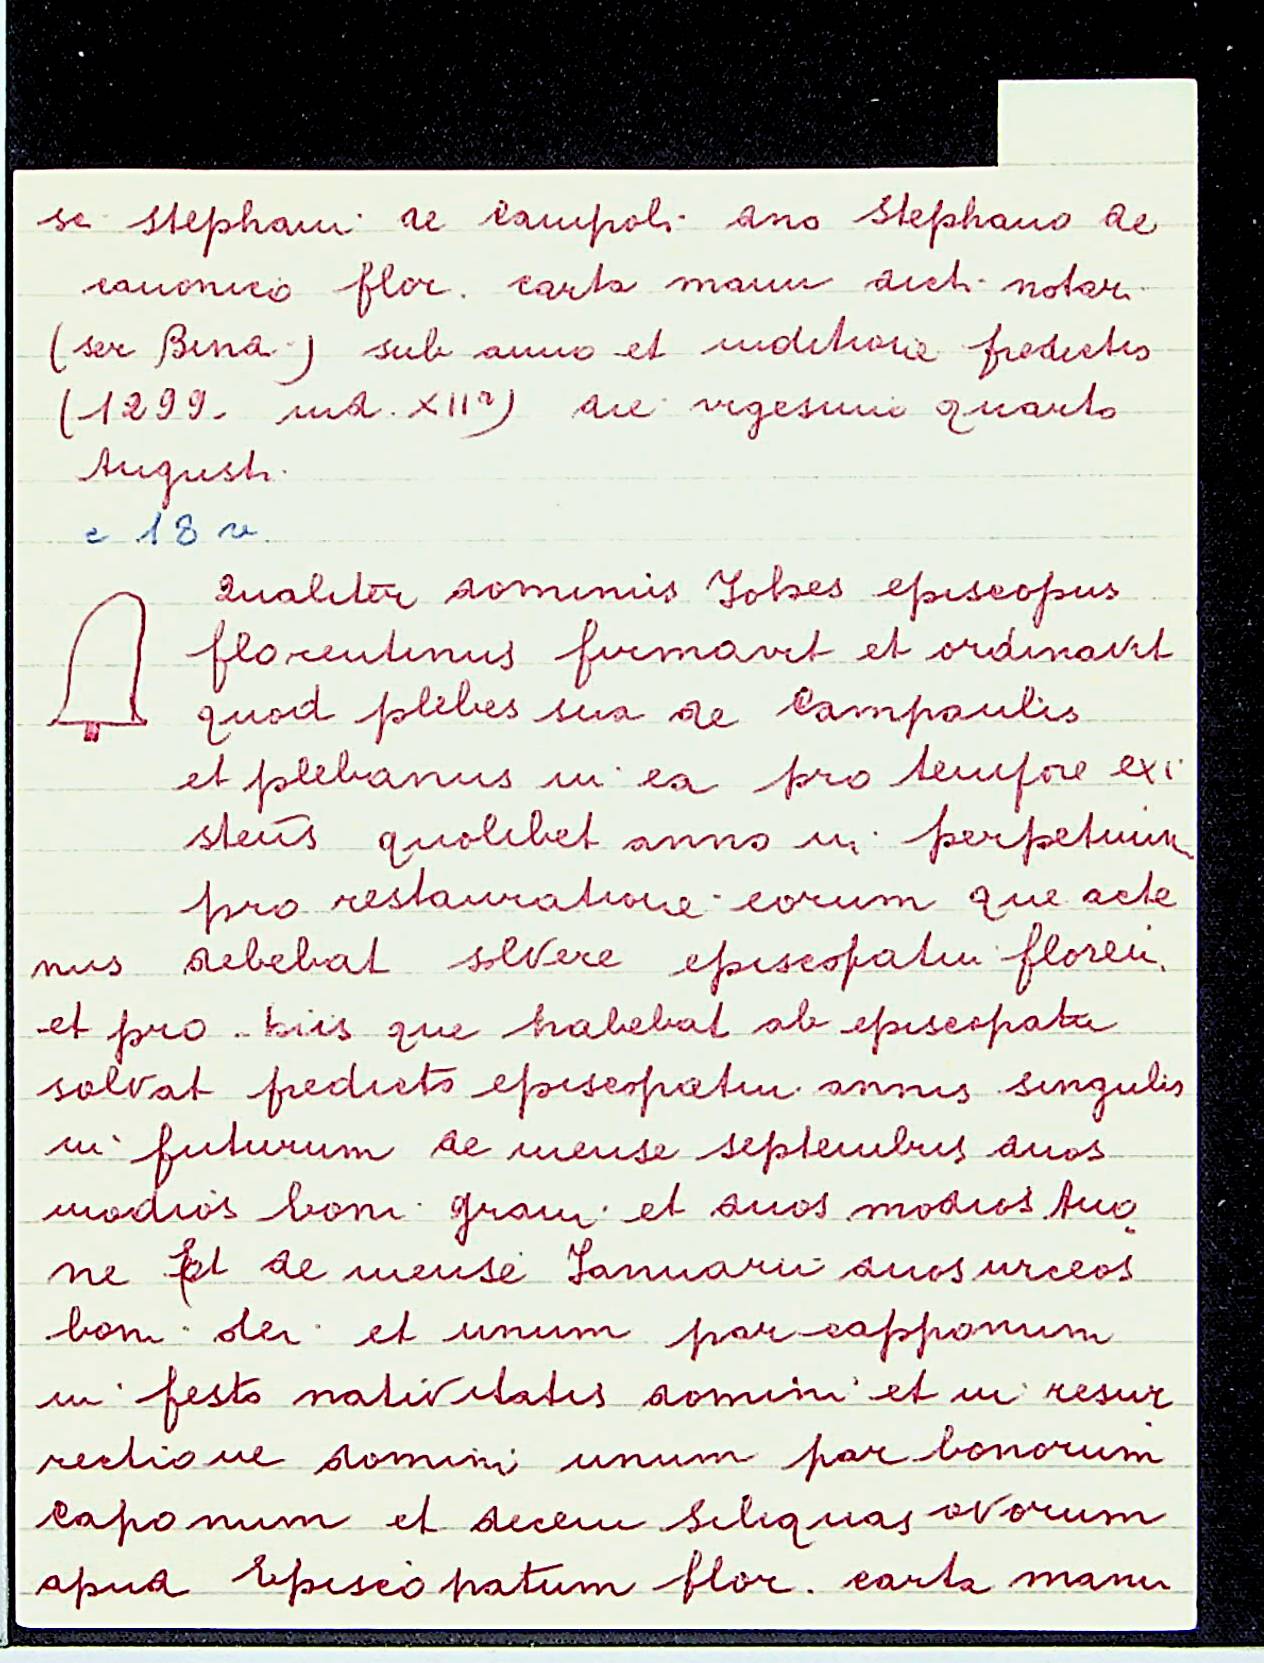 sci Stephani de Campoli dno Stephano de
canonico flor. carta manu dicti notari
(ser Bind.) sub anno et inditione predictis
(1299. ind. XIIª) die vigesimo quarto
Augusti.
c 18 v.
Qualiter dominus Johes episcopus
florentinus firmavit et ordinavit
quod plebes sua de Campaulis
et plebanus in ea pro tempore exi
stens quolibet anno in perpetuum
pro restauratione eorum que acte
nus debebat solvere episcopatui floren.
et pro hiis que habebat ab episcopatu
solvat predicto episcopatui annis singulis
in futurum de mense septembris duos
modios boni grani et duos modios
ne Et de mense Januarii duos urceos
boni olei et unum par capponum
in festo nativitatis domini et in resur
rectione domini unum par bonorum
caponum et decem seliquas ovorum
apud Episcopatum flor. carta manu